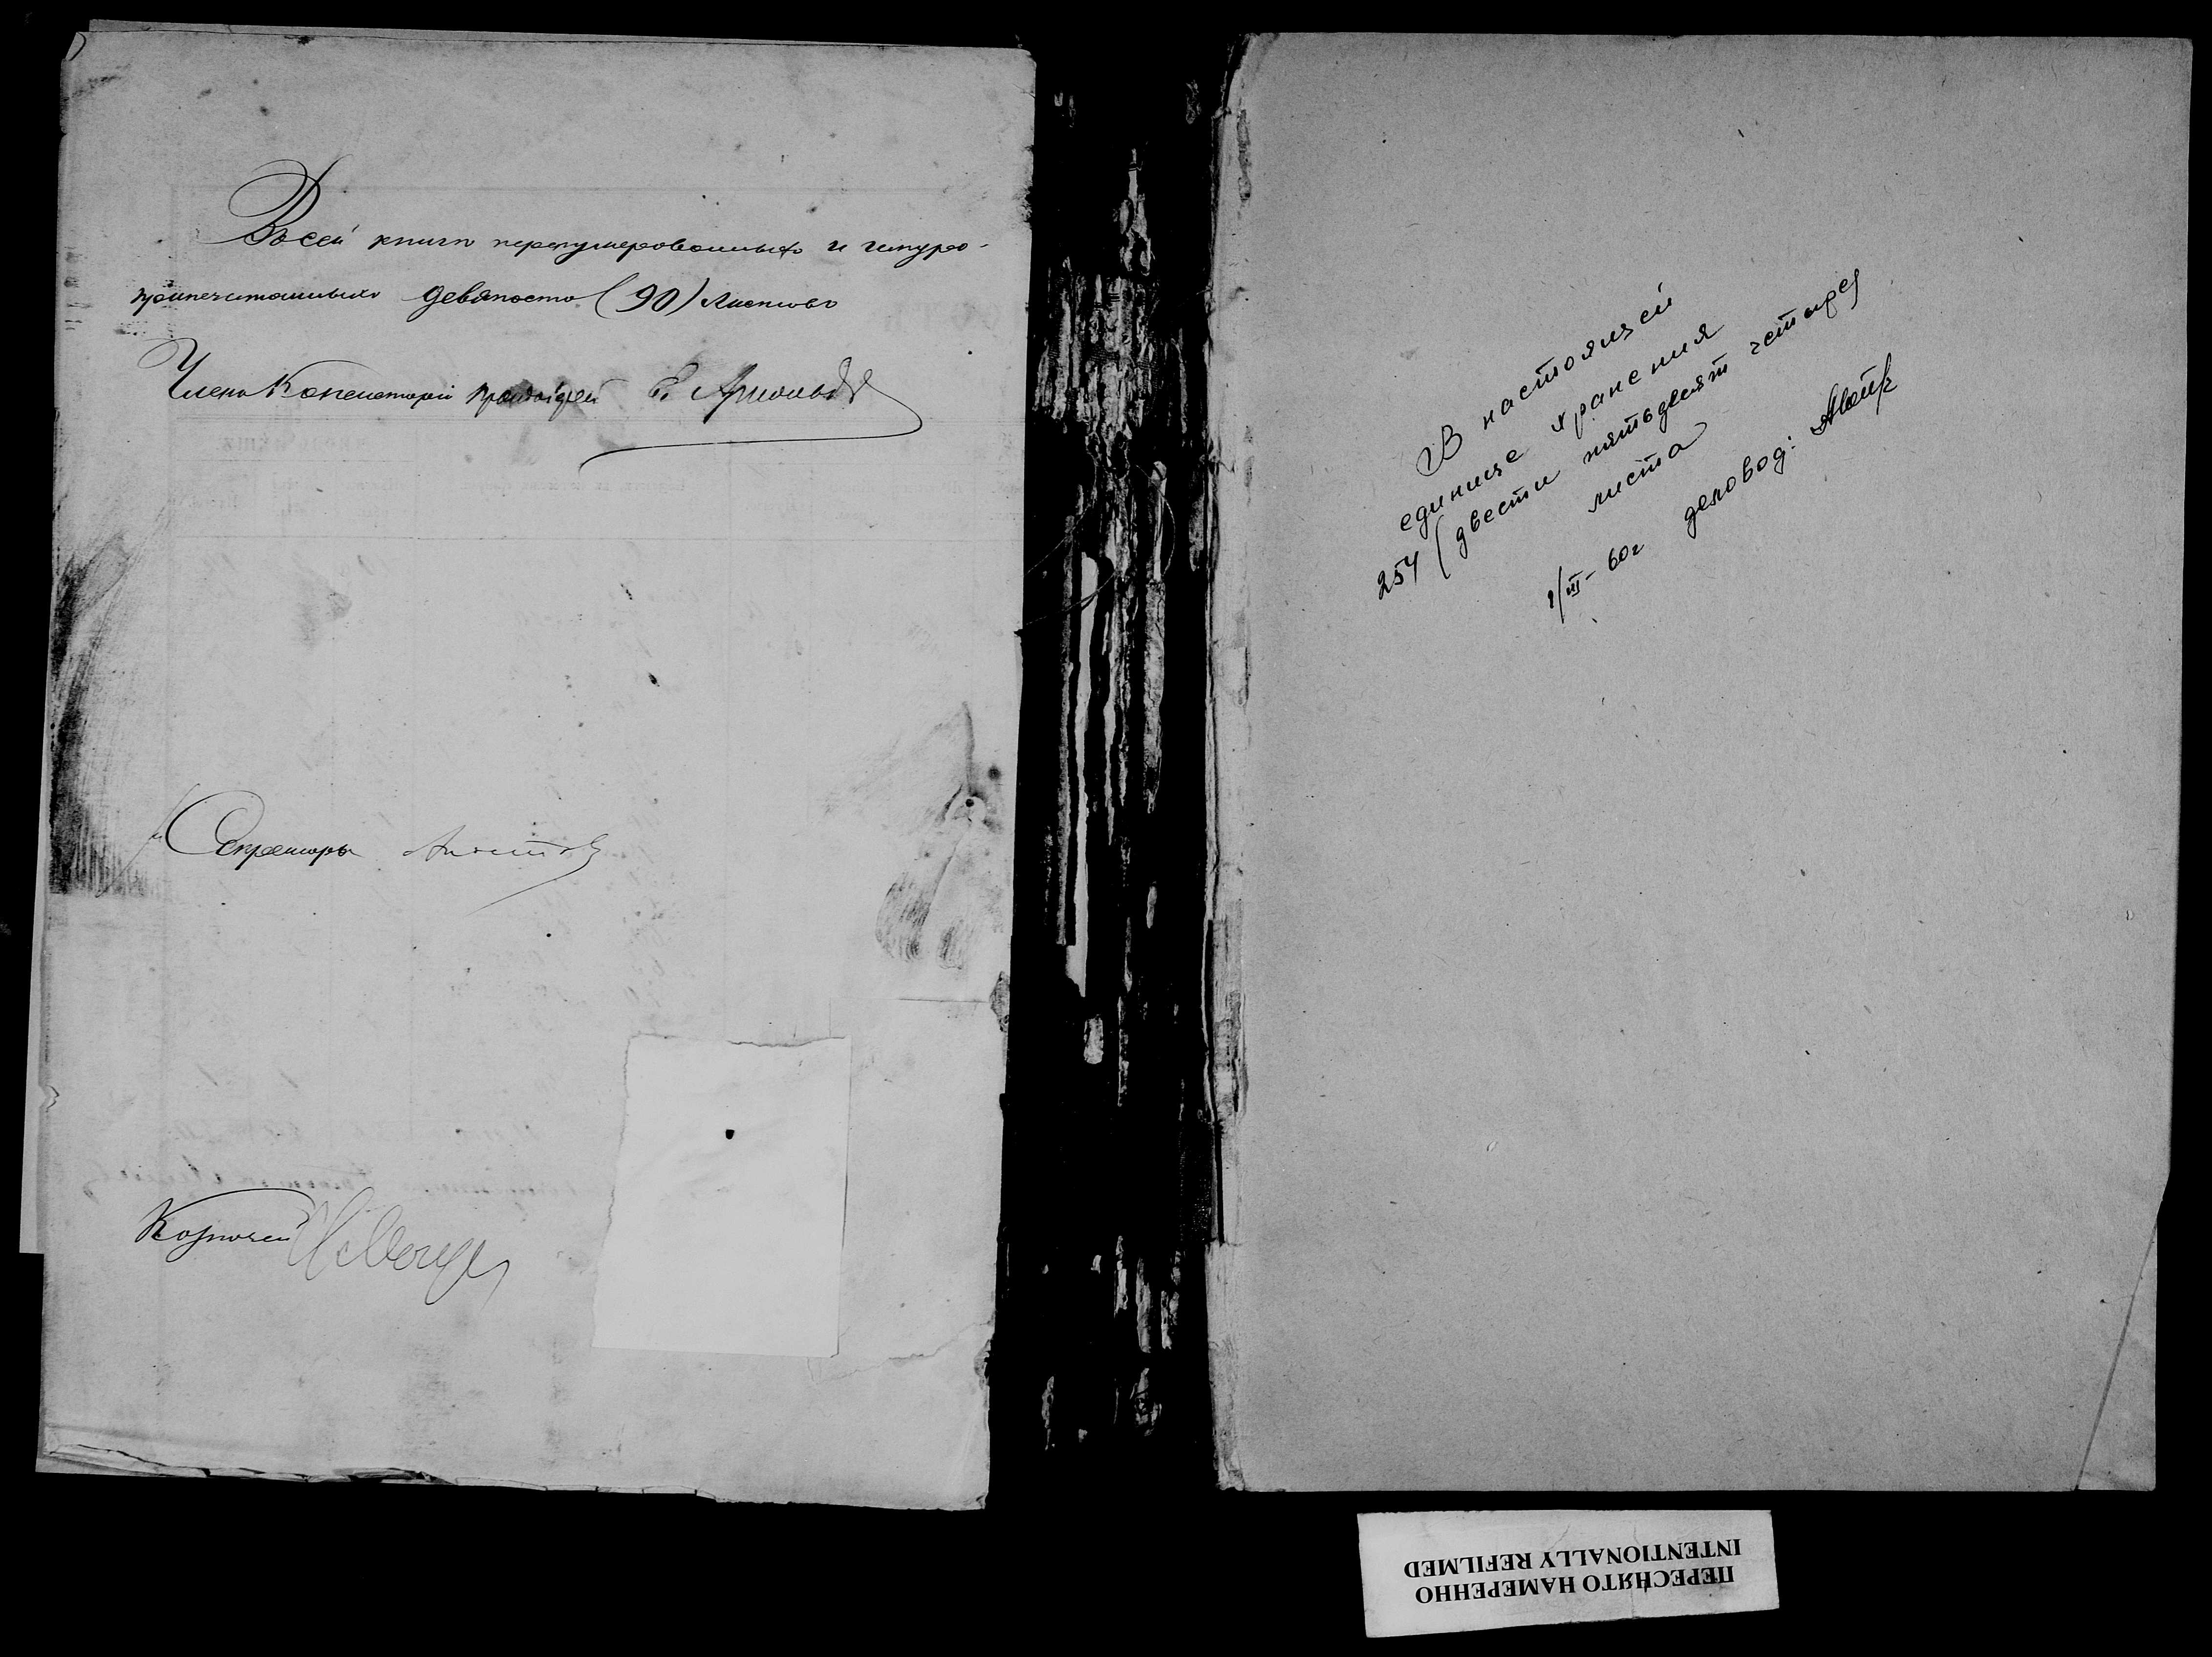 Въ сей книгѣ перенумерованныхъ и шнуро-
припечатанныхъ девяносто (90) листовъ
Членъ Консисторіи Протоіерей Е. Арнольдовъ
Секретарь
Казначей
В настоящей
единице хранения
254 (двести пятьдесят четыре)
листа
1/III-60г деловод:
ПЕРЕСНЯТО НАМЕРЕННО
INTENTIONALLY REFILMED